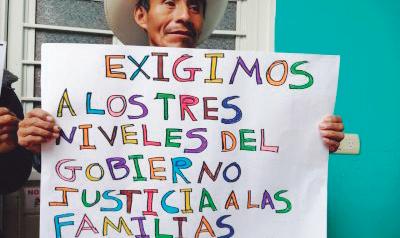 EXIGIMOS
A LOS TRES
NIVELES DEL
GOBIERNO
JUSTICIA A LAS
FAMILIAS